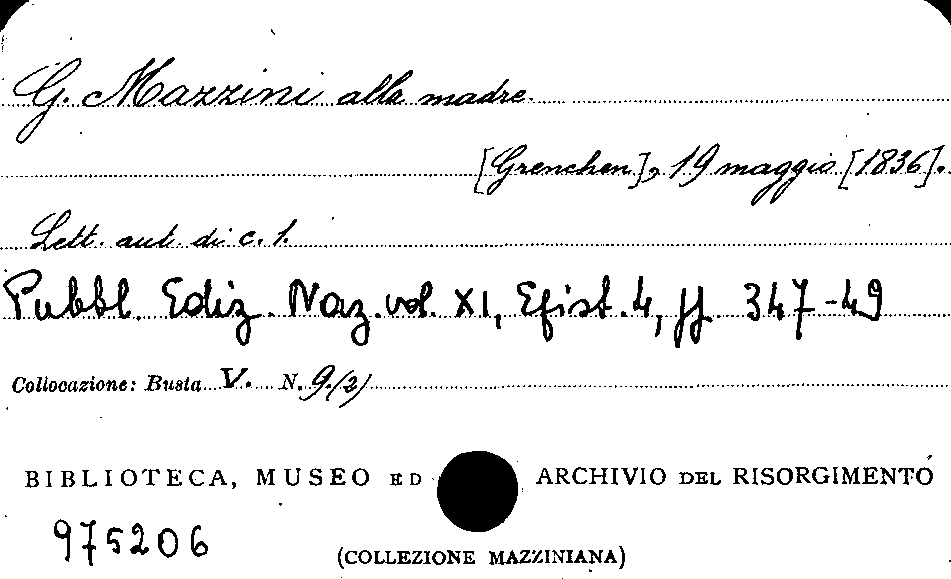 G. Mazzini alla madre.
[Grenchen], 19 maggio [1836].
Lett. aut. di c. 1.
Pubbl. Ediz. Naz. vol. XI, Epist. 4, pp. 347-49
Collocazione: Busta V. N. 9.(2)
BIBLIOTECA, MUSEO ED ARCHIVIO DEL RISORGIMENTO
975206
(COLLEZIONE MAZZINIANA)